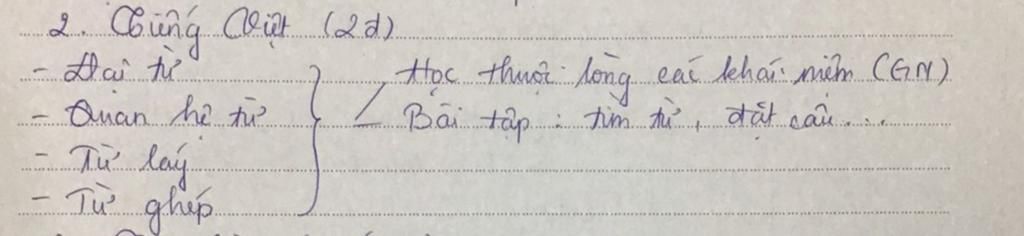 2. Tiếng Việt (2đ)
- Đại từ
- Quan hệ từ
- Từ láy
- Từ ghép
Học thuộc lòng các khái niệm (GN)
Bài tập : tìm từ, đặt câu...